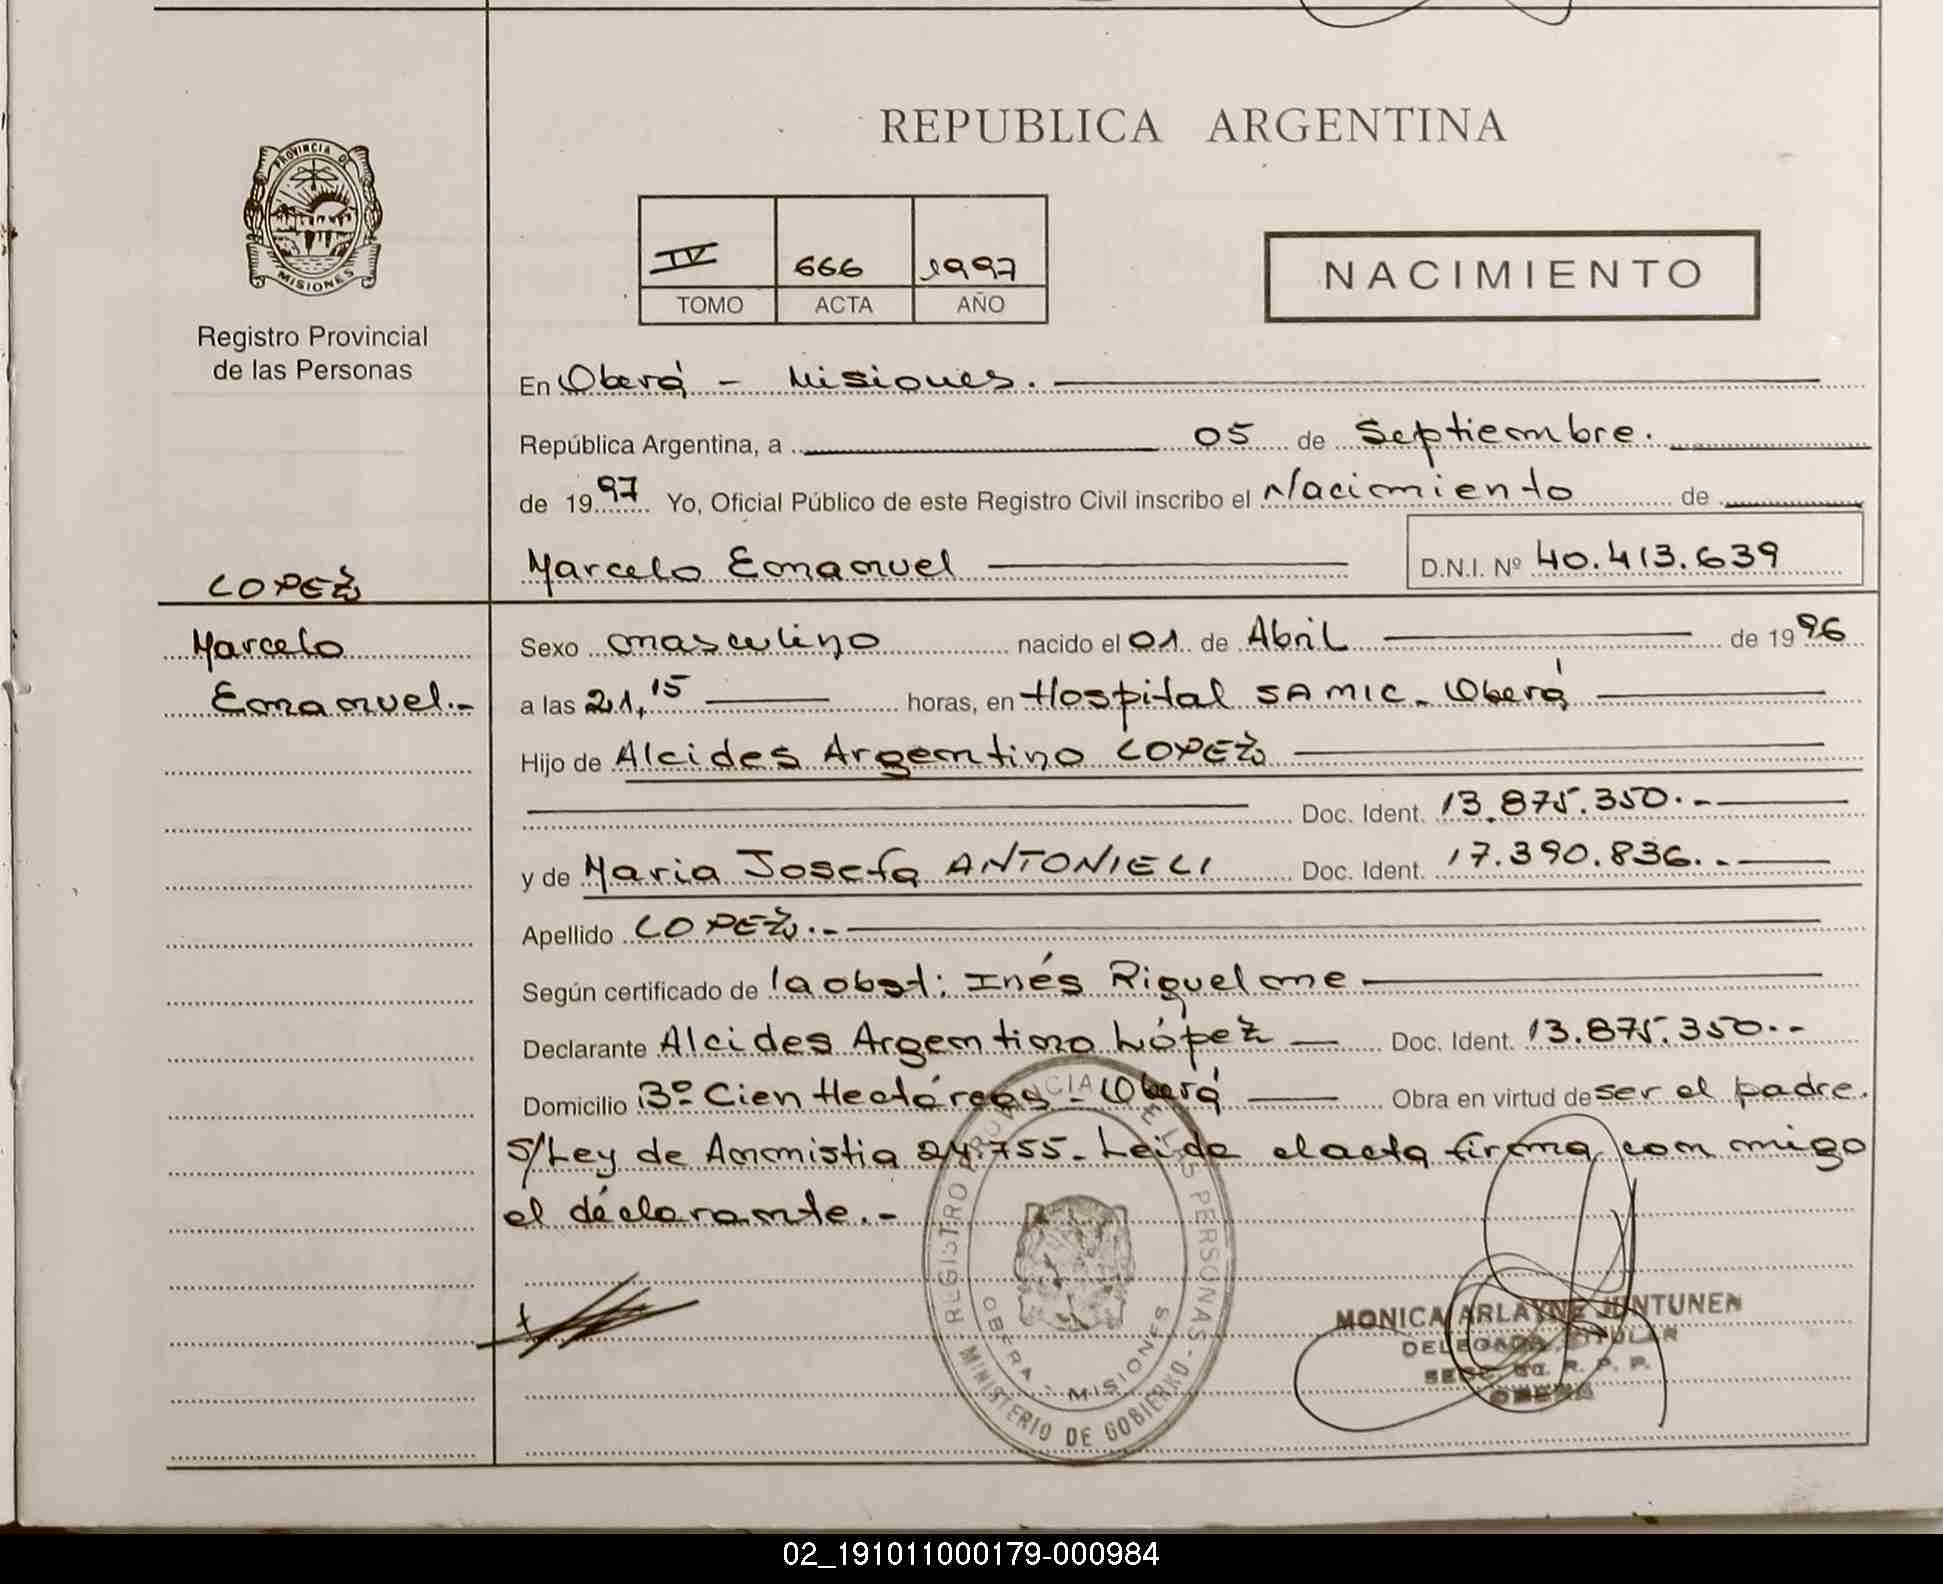 REPUBLICA ARGENTINA
PROVINCIA DE
MISIONES
Registro Provincial
de las Personas
IV 666 1997
TOMO ACTA AÑO
NACIMIENTO
En Oberá - Misiones.
República Argentina, a 05 de Septiembre.
de 1997 Yo, Oficial Público de este Registro Civil inscribo el Nacimiento de
Marcelo Emanuel D.N.I. Nº 40.413.639
LOPEZ
Marcelo
Emanuel.-
Sexo masculino nacido el 01 de Abril de 1996
a las 21,15 horas, en Hospital SAMIC - Oberá
Hijo de Alcides Argentino LOPEZ
Doc. Ident. 13.875.350.-
y de Maria Josefa ANTONIELI Doc. Ident. 17.390.836.-
Apellido LOPEZ.-
Según certificado de la obst: Inés Riquelme
Declarante Alcides Argentino López Doc. Ident. 13.875.350.-
Domicilio B° Cien Hectáreas - Oberá Obra en virtud de ser el padre.
S/Ley de Ammistia 24.755 - Leida el acta firma conmigo
el declarante.-
REGISTRO PROVINCIAL DE LAS PERSONAS - MINISTERIO DE GOBIERNO
OBERA - MISIONES
MONICA ARLAYNE JUNTUNEN
DELEGADA TITULAR
R. P. P.
OBERA
02_191011000179-000984